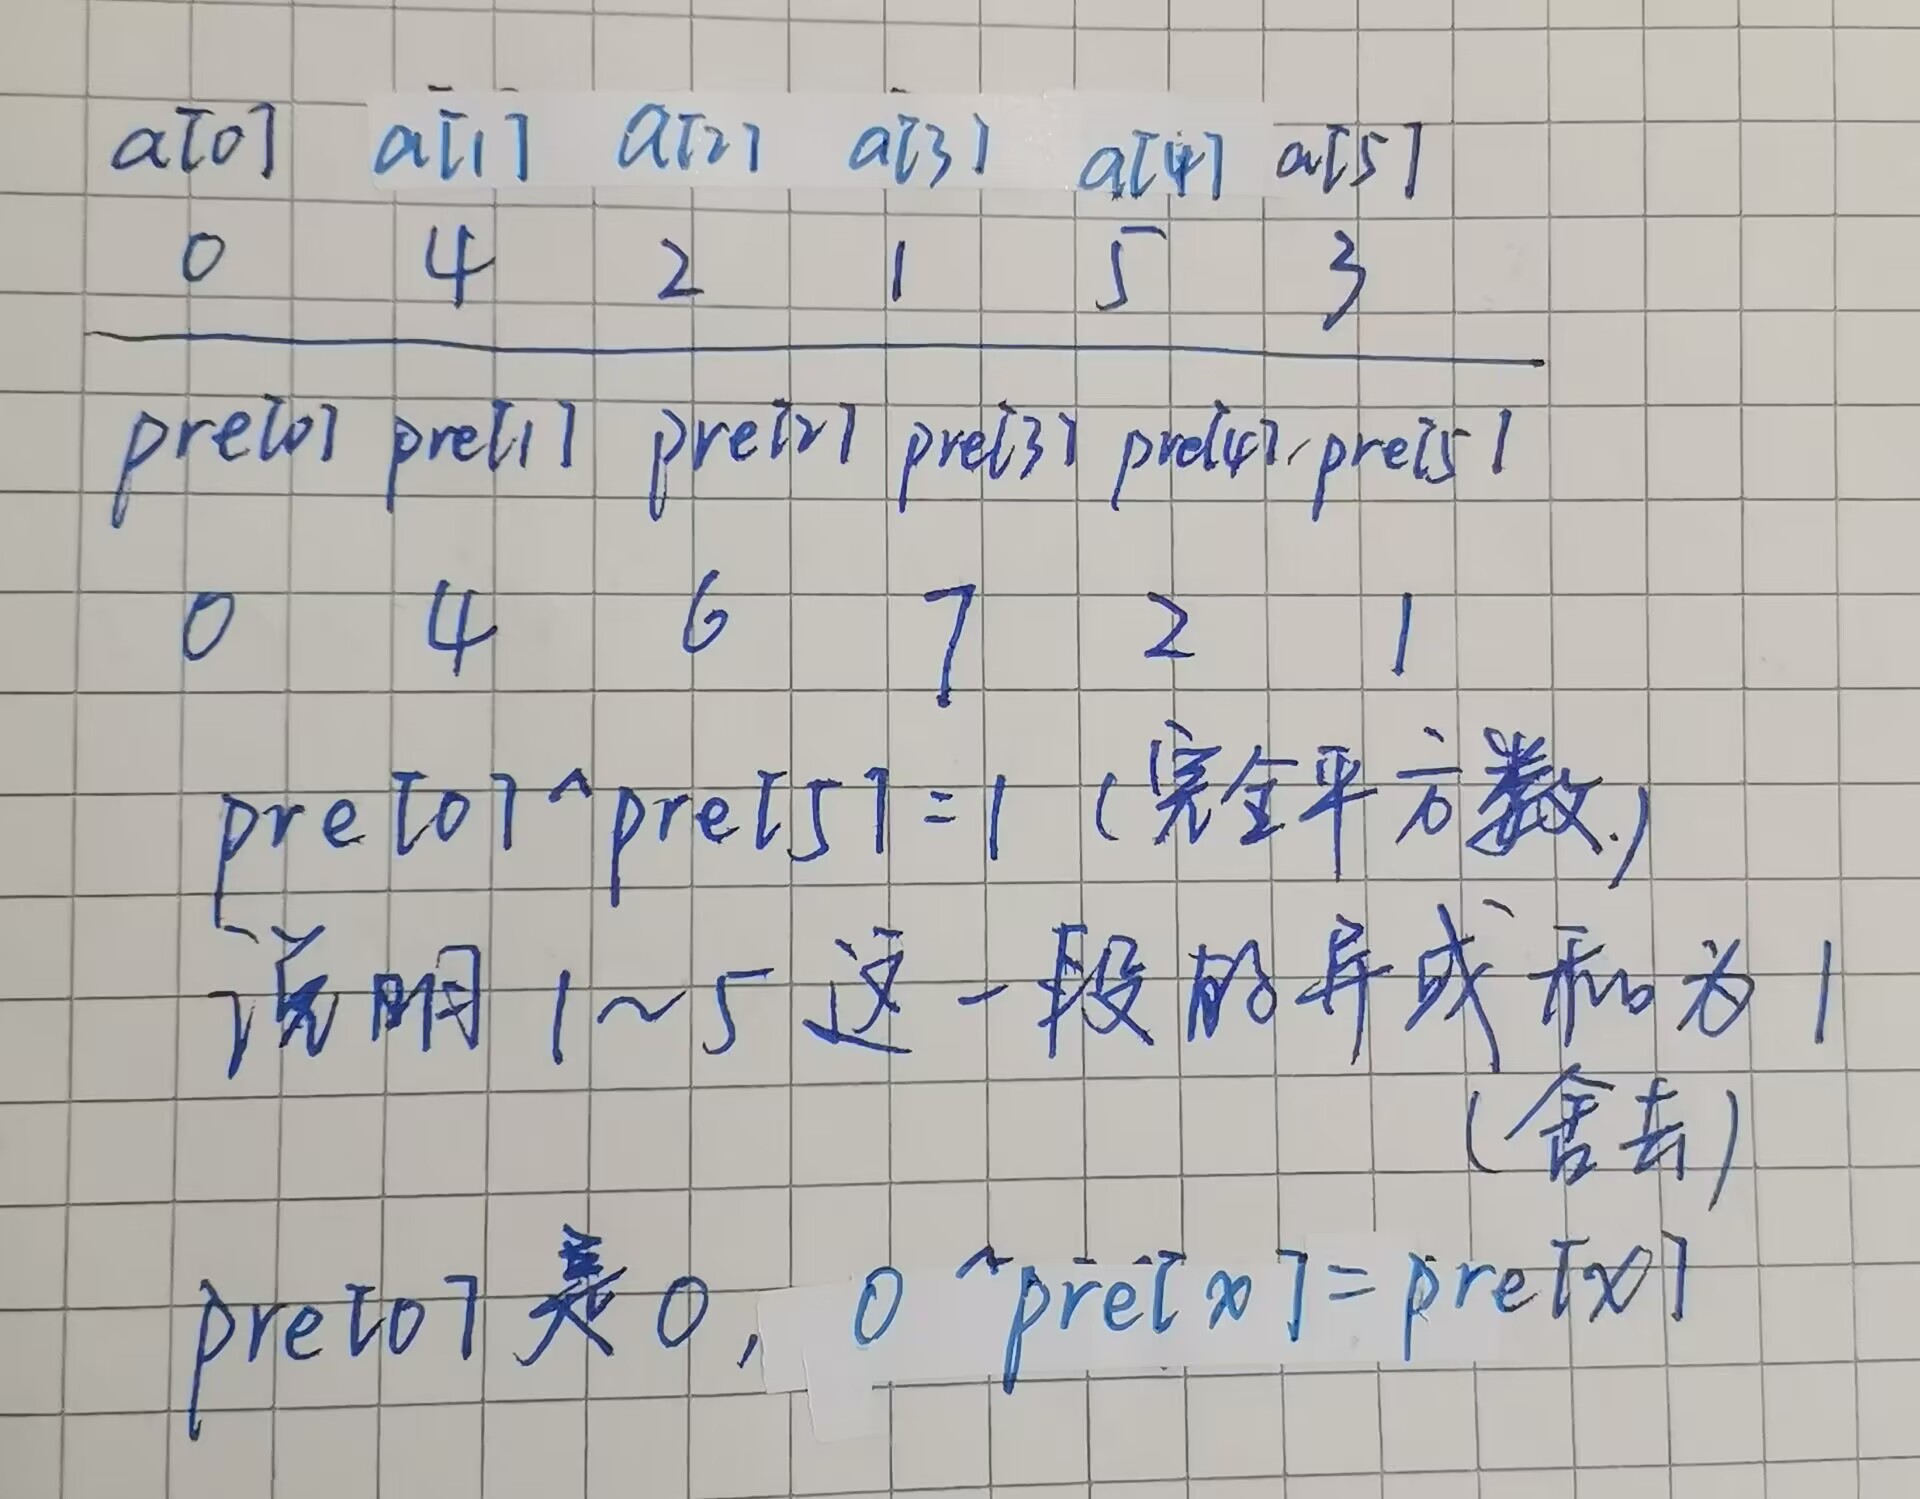 a[0] a[1] a[2] a[3] a[4] a[5]
0 4 2 1 5 3
pre[0] pre[1] pre[2] pre[3] pre[4] pre[5]
0 4 6 7 2 1
pre[0]^pre[5]=1 (完全平方数)
说明1~5这一段的异或和为1
(舍去)
pre[0]是0, 0^pre[x]=pre[x]